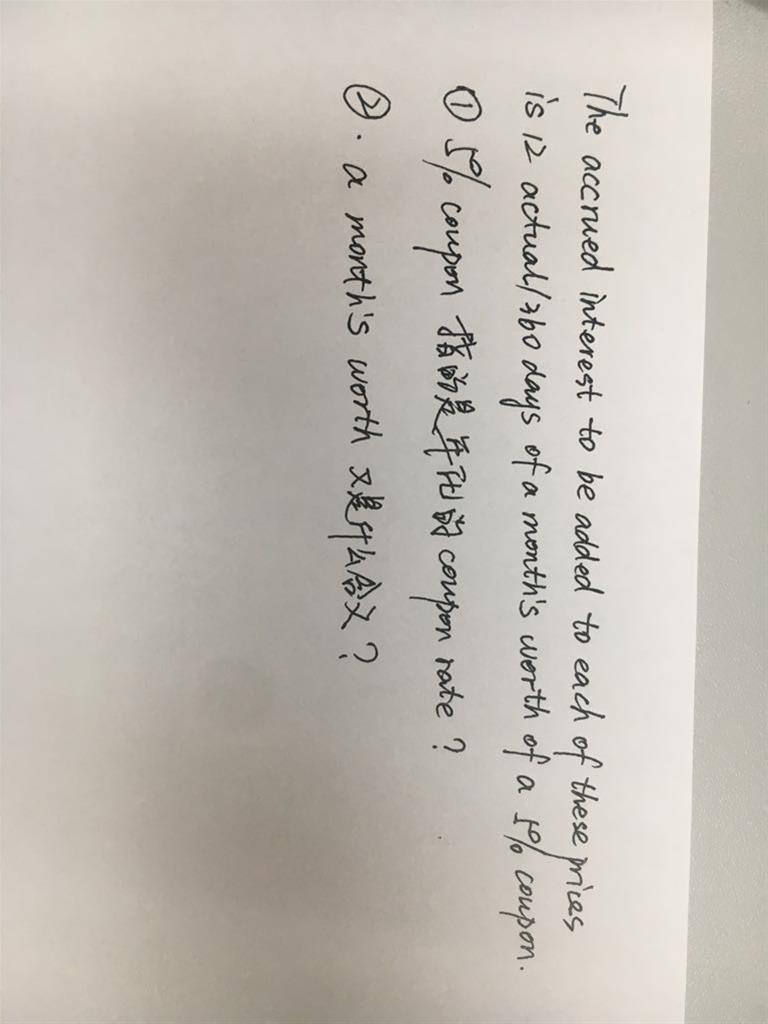 The accrued interest to be added to each of these prices
is 12 actual/360 days of a month's worth of a 5% coupon.
① 5% coupon 指的是年化的 coupon rate?
②. a month's worth 又是什么含义?